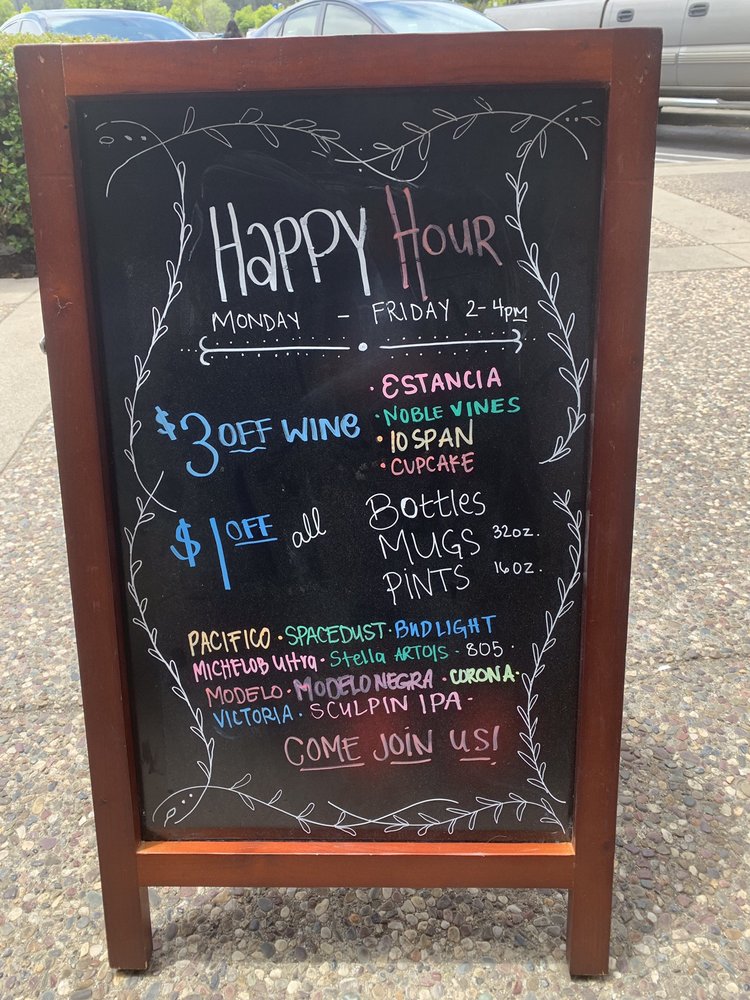 Happy Hour
MONDAY - FRIDAY 2-4pm
$3 OFF WINE
· ESTANCIA
· NOBLE VINES
· 10 SPAN
· CUPCAKE
$1 OFF all
Bottles
MUGS 32oz.
PINTS 16oz.
PACIFICO · SPACEDUST · BUD LIGHT
MICHELOB Ultra · Stella ARTOIS · 805 ·
MODELO · MODELO NEGRA · CORONA ·
VICTORIA · SCULPIN IPA ·
COME JOIN US!